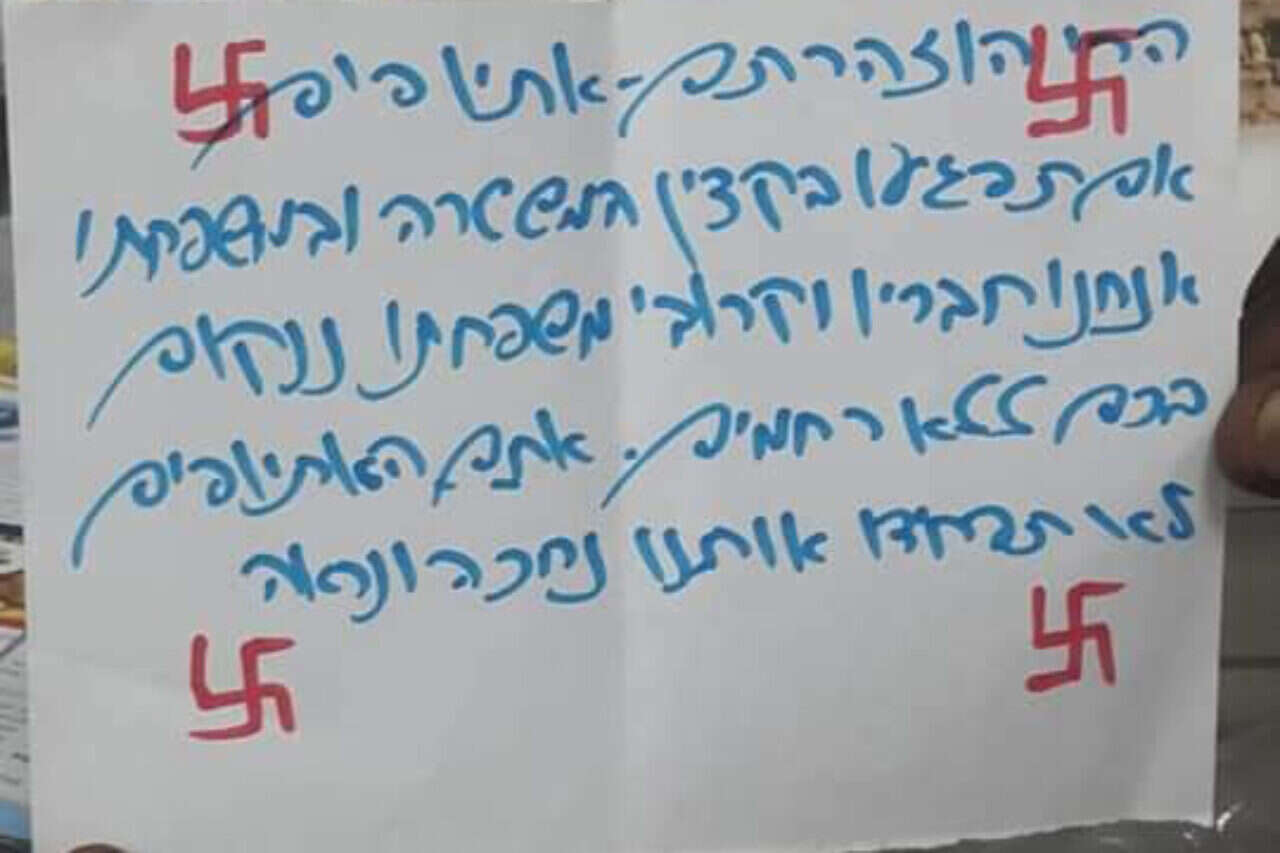 הרי הוזהרתם - אתיופים
אם תפגעו בקצין המשטרה ובמשפחתו
אנחנו חבריו וקרובי משפחתו ננקום
בכם ללא רחמים. אתם האתיופים
לא תפחידו אותנו נחכה ונראה